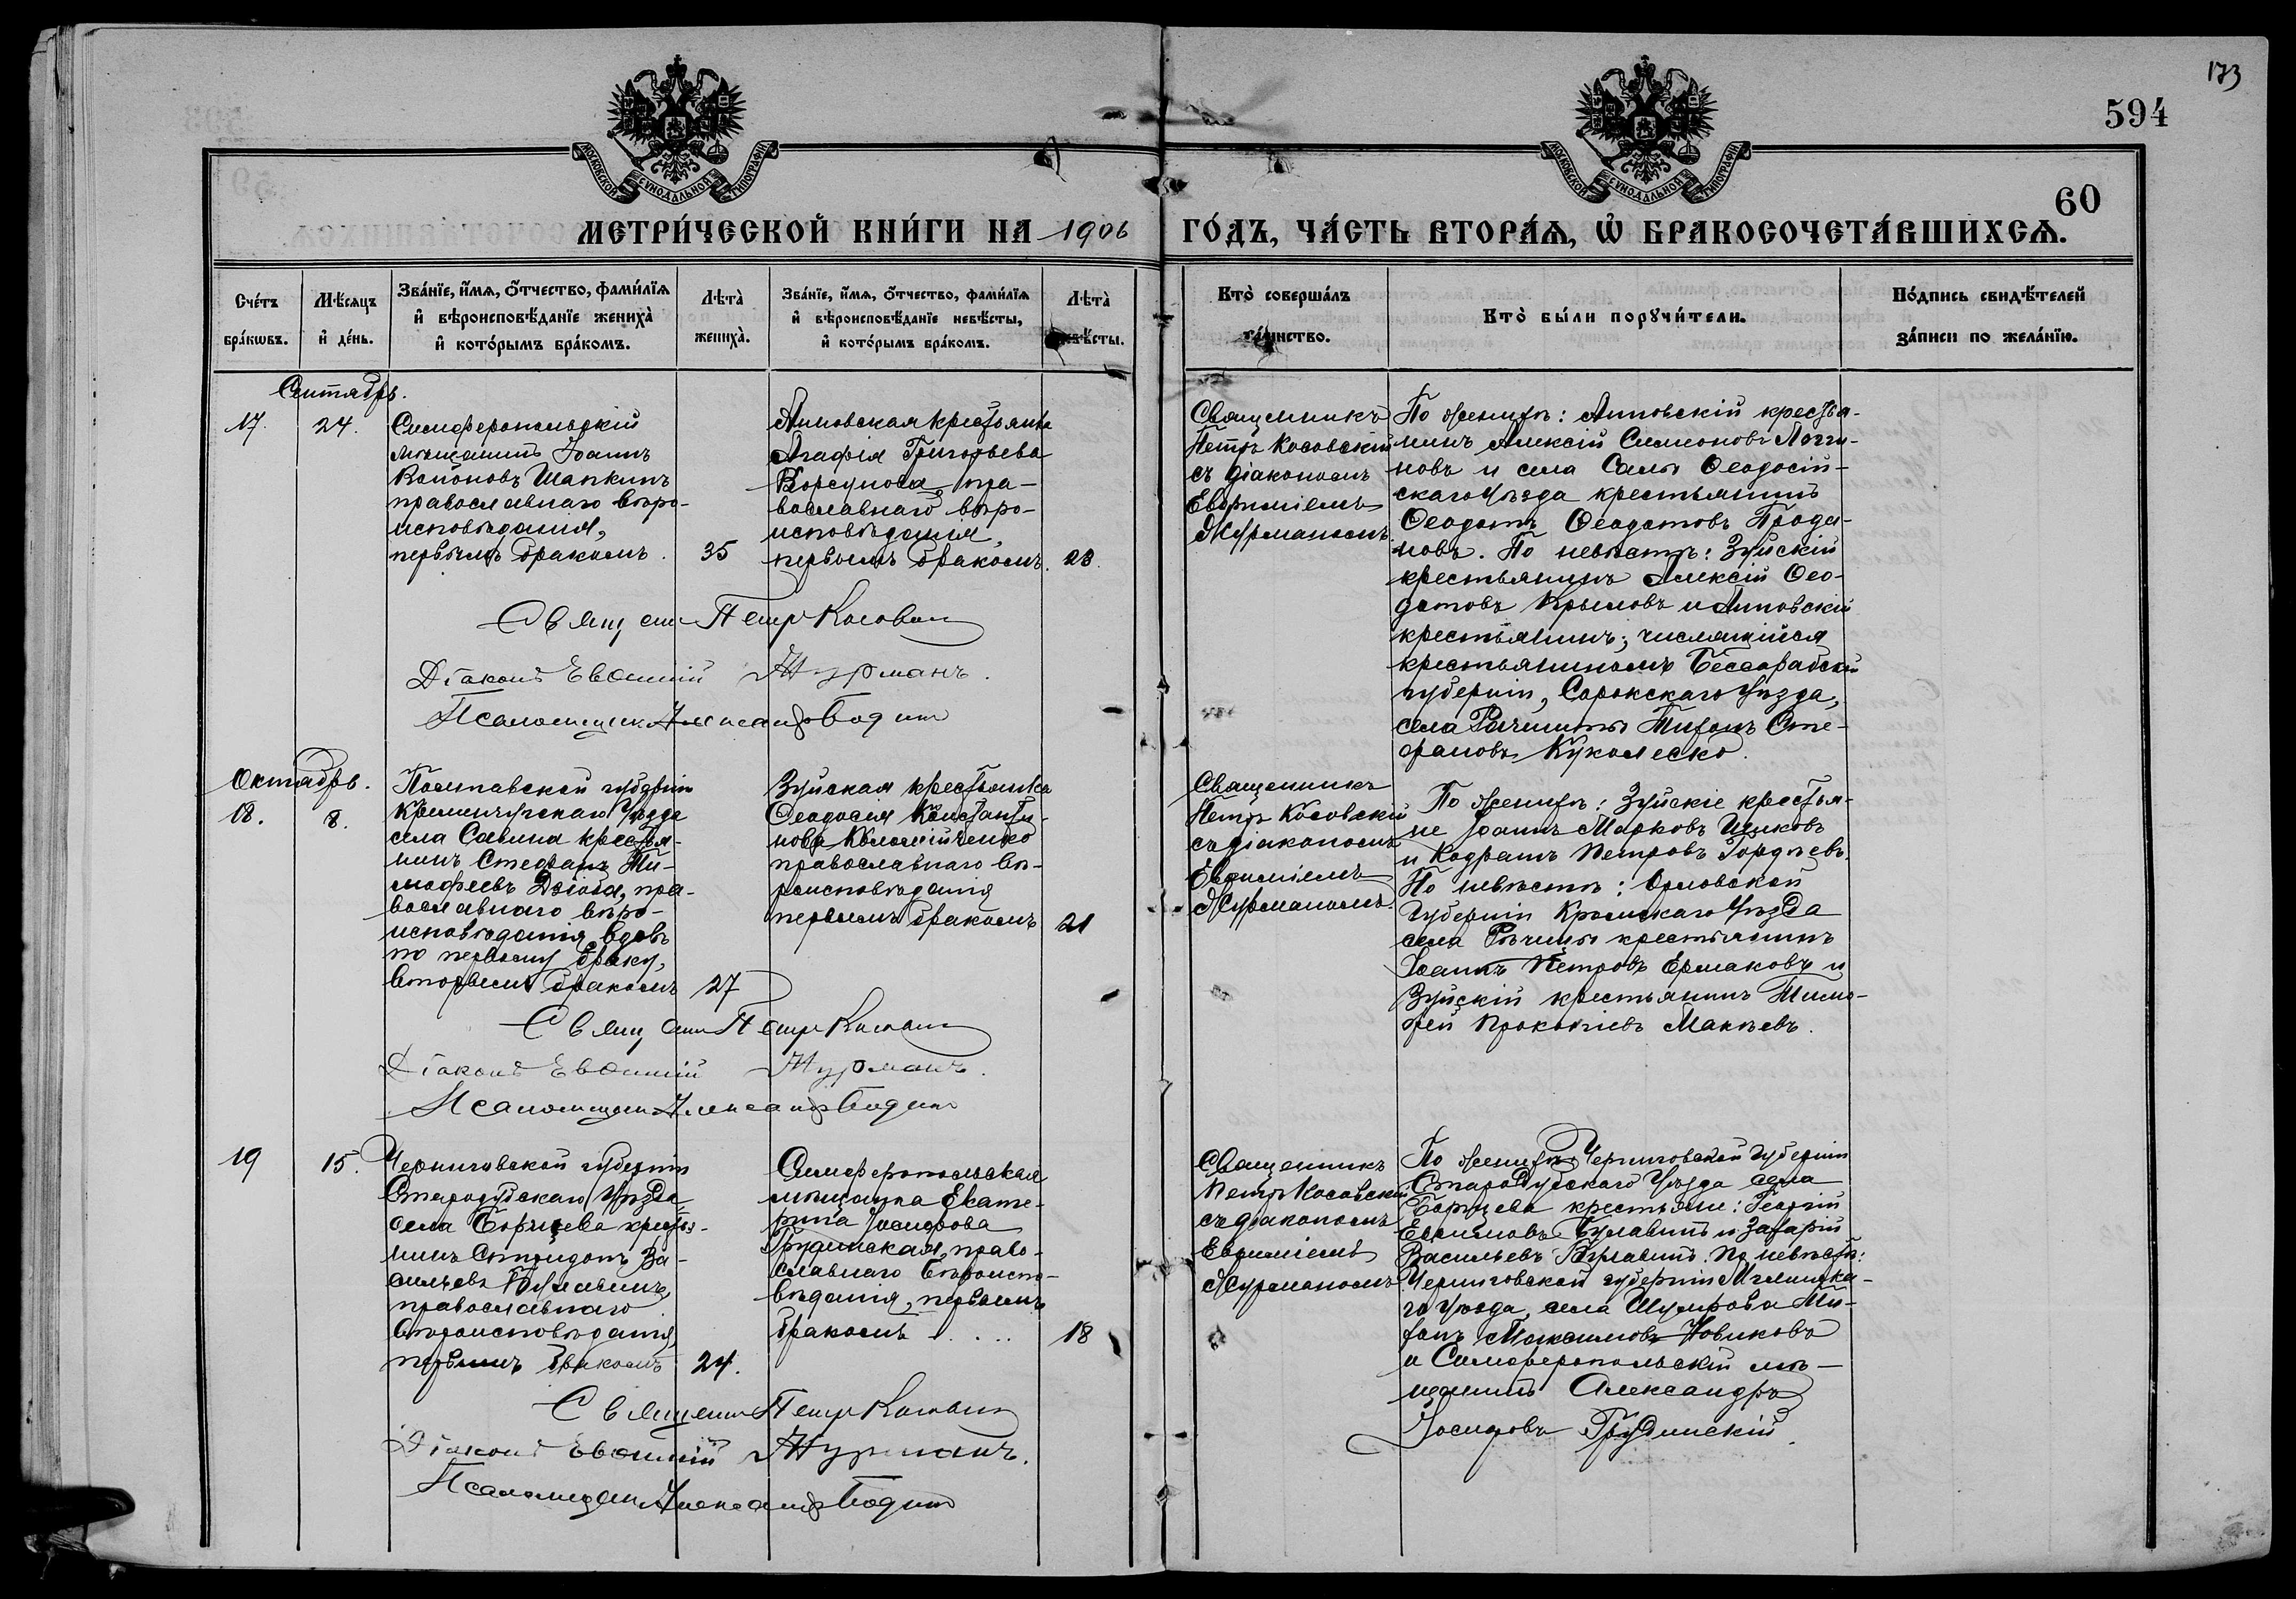 173
594
60
МОСКОВСКОЙ СУНОДАЛЬНОЙ ТИПОГРАФІИ
МОСКОВСКОЙ СУНОДАЛЬНОЙ ТИПОГРАФІИ
МЕТРИ́ЧЕСКОЙ КНИ́ГИ НА 1906 ГО́ДЪ, ЧА́СТЬ ВТОРА́Ѧ, Ѡ҆ БРАКОСОЧЕТА́ВШИХСѦ.
Сче́тъ
бра́кѡвъ.
Мѣ́сяцъ
и҆ де́нь.
Зва́нїе, и҆́мѧ, ѻ҆́тчество, фами́лїѧ
и҆ вѣроисповѣ́данїе жениха̀
и҆ кото́рымъ бра́комъ.
Лѣта̀
жениха̀.
Зва́нїе, и҆́мѧ, ѻ҆́тчество, фами́лїѧ
и҆ вѣроисповѣ́данїе невѣ́сты,
и҆ кото́рымъ бра́комъ.
Лѣта̀
невѣ́сты.
Кто̀ соверша́лъ
та́инство.
Кто̀ бы́ли порꙋчи́тели.
По́дпись свидѣ́телей
за́писи по жела́нїю.
Сентябрь.
17.
24.
Симферопольскій
мѣщанинъ Іоаннъ
Кононовъ Шапкинъ
православнаго вѣро-
исповѣданія,
первымъ бракомъ.
35
Аннovская крестьянка
Агафія Григорьева
Корсунова, пра-
вославнаго вѣро-
исповѣданія,
первымъ бракомъ.
23.
Священникъ
Петръ Косовскій
съ діакономъ
Евфиміемъ
Журманомъ.
По женихѣ: Анновскій крестья-
нинъ Алексій Симеоновъ Логги-
новъ и села Салы Ѳеодосій-
скаго уѣзда крестьянинъ
Ѳеодотъ Ѳеодотовъ Прода-
новъ. По невѣстѣ: Зуйскій
крестьянинъ Алексій Ѳео-
дотовъ Крымовъ и Анновскій
крестьянинъ, числящійся
крестьяниномъ Бессарабской
губерніи, Сорокскаго уѣзда,
села Тихонъ Сте-
фановъ Куколеско.
Священ. Петръ Косовск
Діаконъ Евѳимій Журманъ.
Псаломщик Александръ Бодин
Октябрь.
18.
8.
Полтавской губерніи
Кременчугскаго уѣзда
села Савина крестья-
нинъ Стефанъ Ти-
мофеевъ Дзюба, пра-
вославнаго вѣро-
исповѣданія, вдовъ
по первому браку,
вторымъ бракомъ
27
Зуйская крестьянка
Ѳеодосія Константи-
нова Коломійченко
православнаго вѣ-
роисповѣданія
первымъ бракомъ
21
Священникъ
Петръ Косовскій
съ діакономъ
Евфиміемъ
Журманомъ.
По женихѣ: Зуйскіе крестья-
не Іоаннъ Марковъ
и Кодратъ Петровъ Гордѣевъ.
По невѣстѣ: Орловской
губерніи Кромскаго уѣзда
села Рѣчицы крестьянинъ
Іоаннъ Петровъ Ермаковъ и
Зуйскій крестьянинъ Тимо-
фей Прокопіевъ Макѣевъ.
Священ. Петръ Косовск
Діаконъ Евѳимій Журманъ.
Псаломщик Александръ Бодин
19
15.
Черниговской губерніи
Стародубскаго уѣзда
села Борщева крестья-
нинъ Спиридонъ Ва-
сильевъ Булавинъ,
православнаго
вѣроисповѣданія,
первымъ бракомъ
24.
Симферопольская
мѣщанка Екате-
рина Іосифова
Грудинская, право-
славнаго вѣроиспо-
вѣданія, первымъ
бракомъ ....
18
Священникъ
Петръ Косовскій
съ діакономъ
Евфиміемъ
Журманомъ
По женихѣ: Черниговской губерніи
Стародубскаго уѣзда села
Борщева крестьяне: Георгій
Евфимовъ Булавинъ и Захарій
Васильевъ Булавинъ. По невѣстѣ:
Черниговской губерніи Мглинска-
го уѣзда, села Шумрова Ми-
Максимовъ Новиковъ
и Симферопольскій мѣ-
щанинъ Александръ
Іосифовъ Грудинскій.
Священник Петръ Косовск
Діаконъ Евѳимій Журманъ.
Псаломщик Александръ Бодин